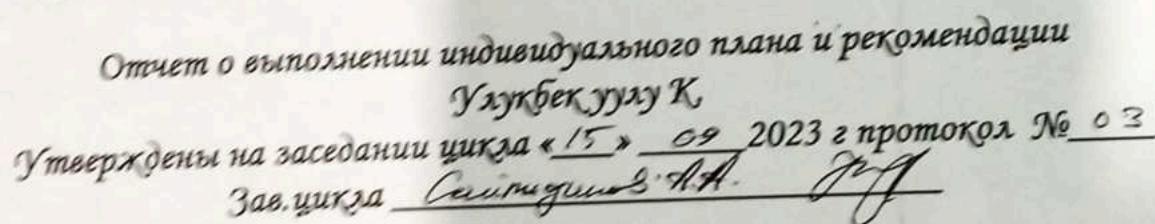 Отчет о выполнении индивидуального плана и рекомендации
Улукбек уулу К,
Утверждены на заседании цикла «15» 09 2023 г протокол № 03
Зав.цикла А.А.